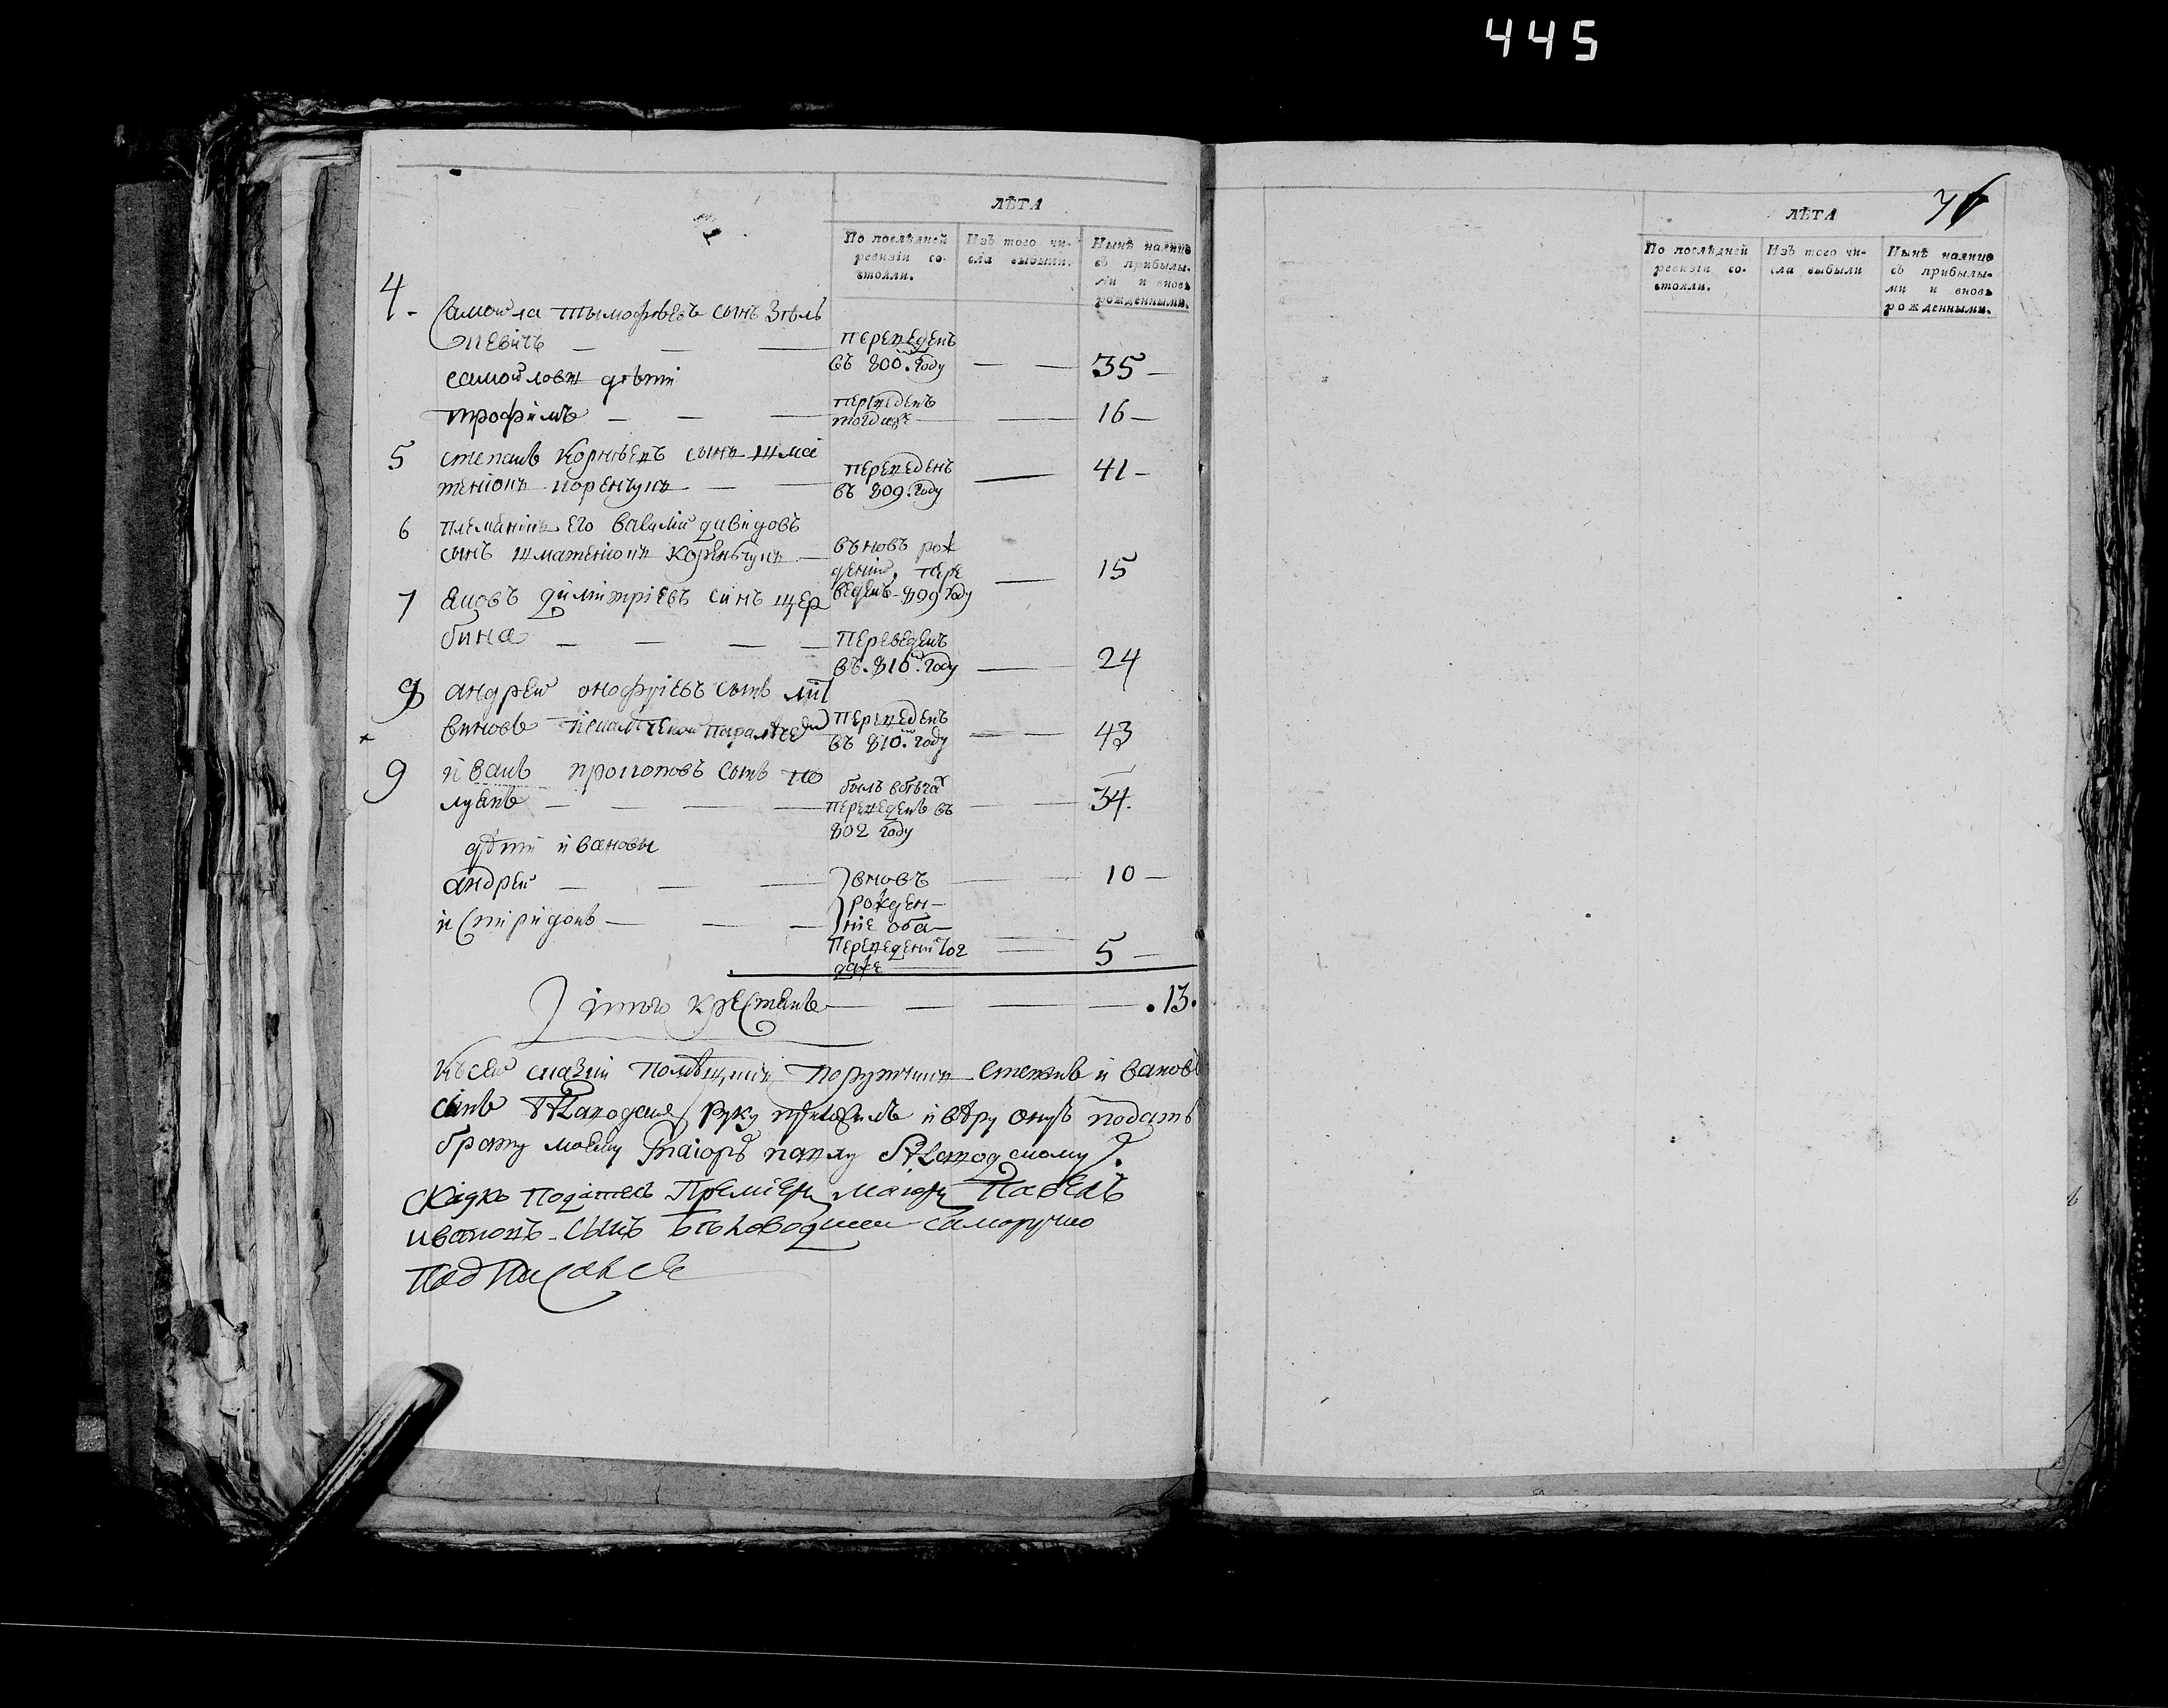 445
ЛѢТА
По послѣдней ревизіи со-стояли.
Изъ того чи-сла выбыли.
Нынѣ налицо съ прибылы-ми и вновь рожденными.
4
Самойла тымофѣевъ сынъ
переведенъ
въ 800. году — — 35 —
самойловы дѣти
трофимъ — — — переведенъ
тогдаже — — 16 —
5 степанъ корнѣевъ сынъ
переведенъ
въ 809. году — 41 —
6 племянникъ его василій давидовъ
сынъ
въновь рож
деній, пере
веденъ 809 году — 15
7 яковъ димитріевъ синъ щер
бина — — — — переведенъ
въ 810. году — 24
8 андрей онофріевъ сынъ
переведенъ
въ 810. году — — 43
9 иванъ прокоповъ сынъ
былъ вбѣгах
переведенъ въ
802 году — — 34.
дѣти ивановы
андрей — — — вновь — — 10 —
и спиридонъ — — — рожден—
ніе оба—
переведени тог
даже — 5 —
итого крестянъ — — — — .13.
къ сей сказки помѣщикъ порутчикъ степанъ ивановъ
сынъ руку приложилъ и вѣру оную подать
брату моему маіору павлу
скаску податель Премiеръ маiоръ Павелъ
ивановъ сынъ саморучно
Подписался
ЛѢТА
По послѣдней ревизіи со-стояли.
Изъ того чи-сла выбыли
Нынѣ налицо съ прибылы-ми и вновь рожденными.